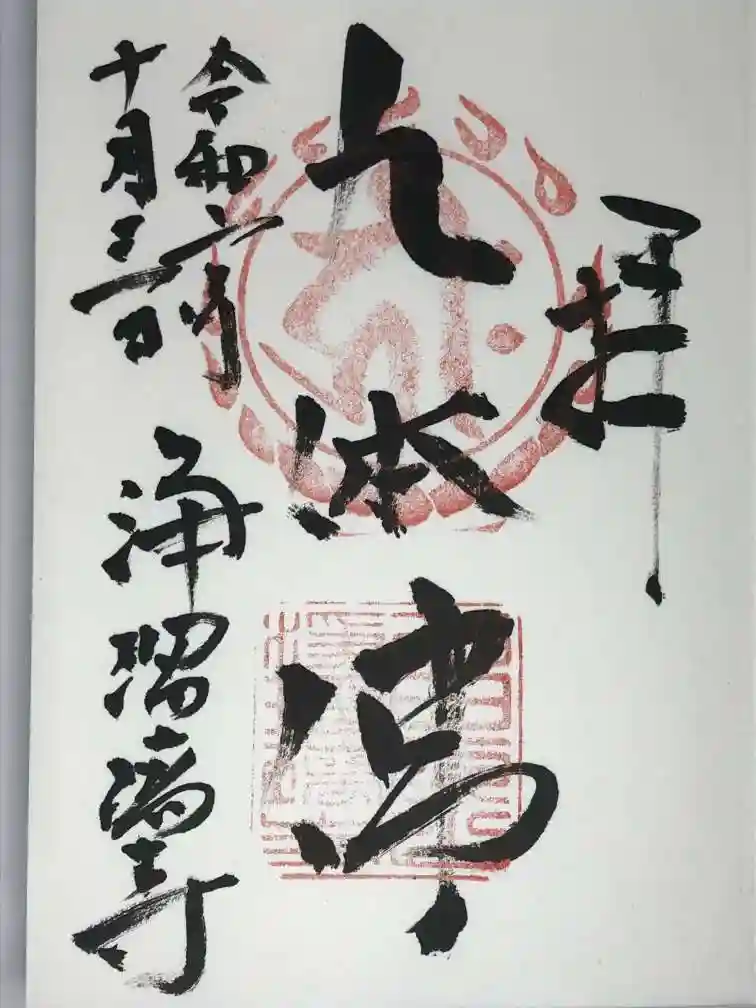 奉拝
九体佛
令和六年
十月三十一日
浄瑠璃寺